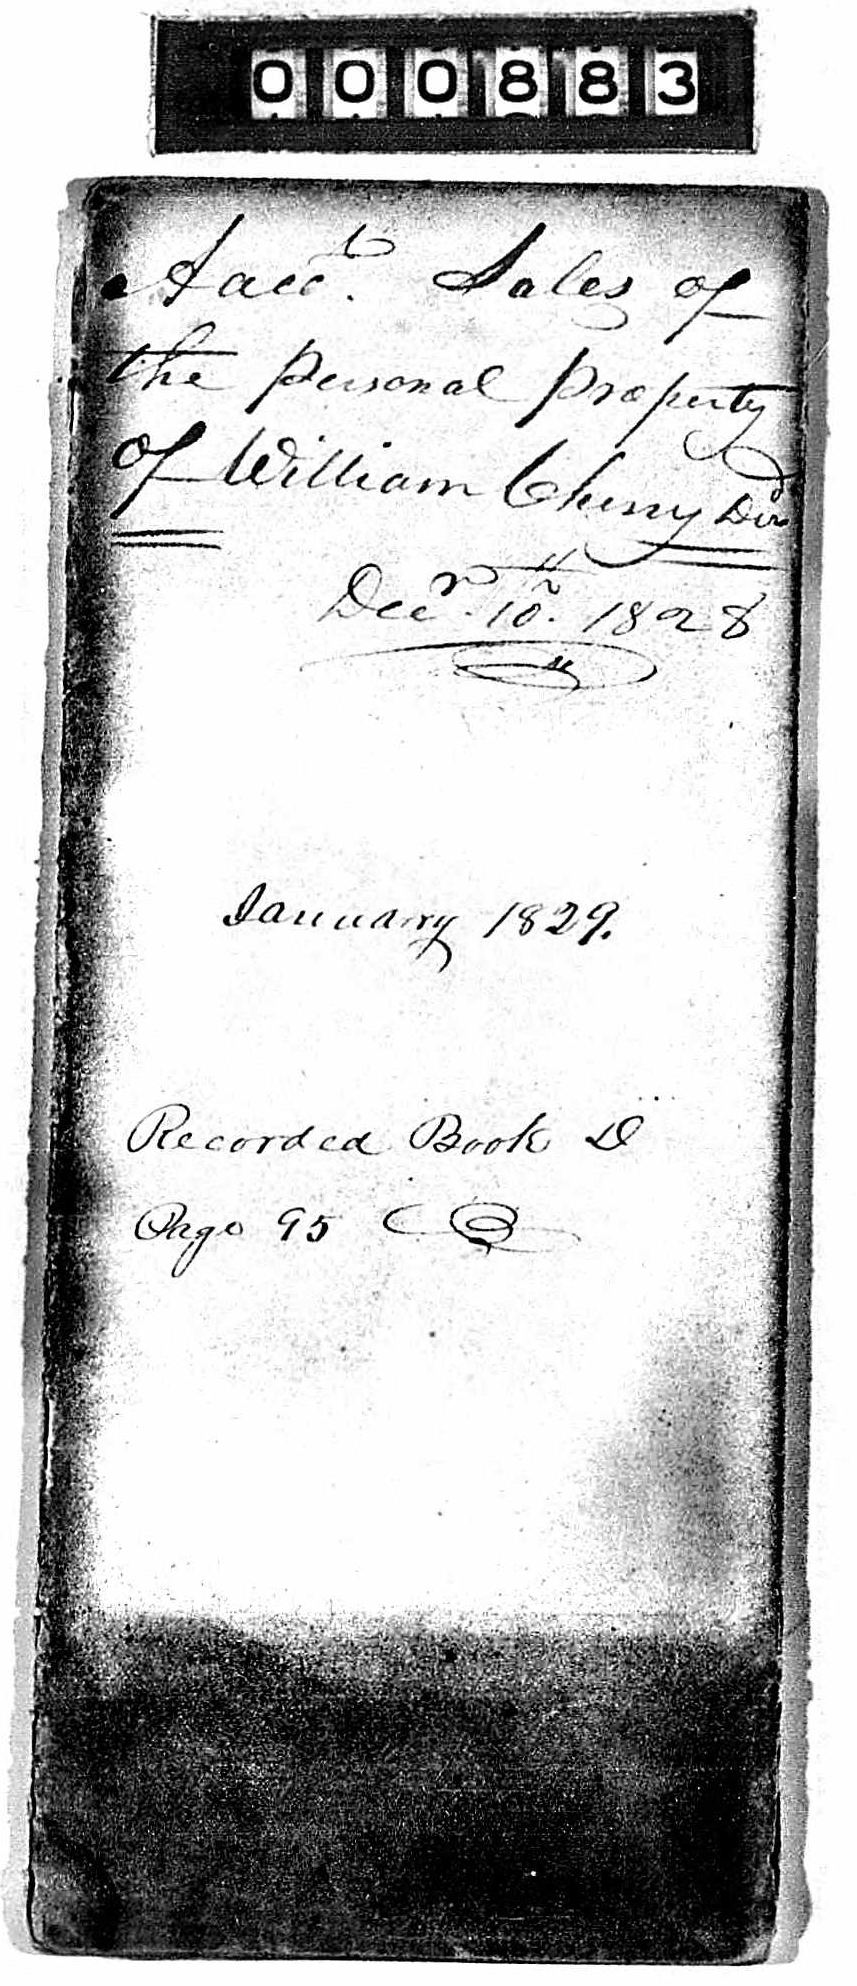 000883
A acct. Sales of
the personal property
of William Cherry Dcd
Decr. 10th. 1828
January 1829.
Recorded Book D
Page 95